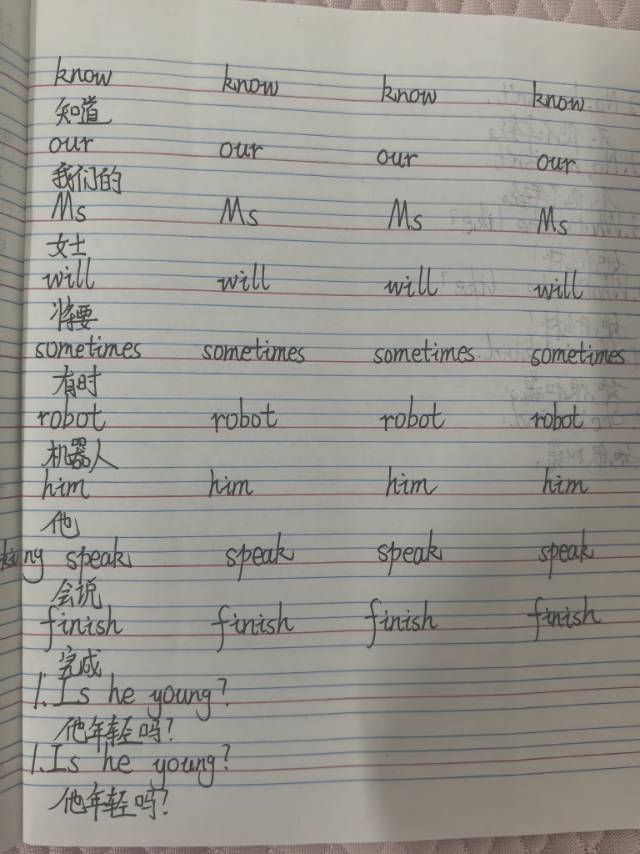 know know know know
知道
our our our our
我们的
Ms Ms Ms Ms
女士
will will will will
将要
sometimes sometimes sometimes sometimes
有时
robot robot robot robot
机器人
him him him him
他
speak speak speak speak
会说
finish finish finish finish
完成
1. Is he young?
他年轻吗?
1. Is he young?
他年轻吗?